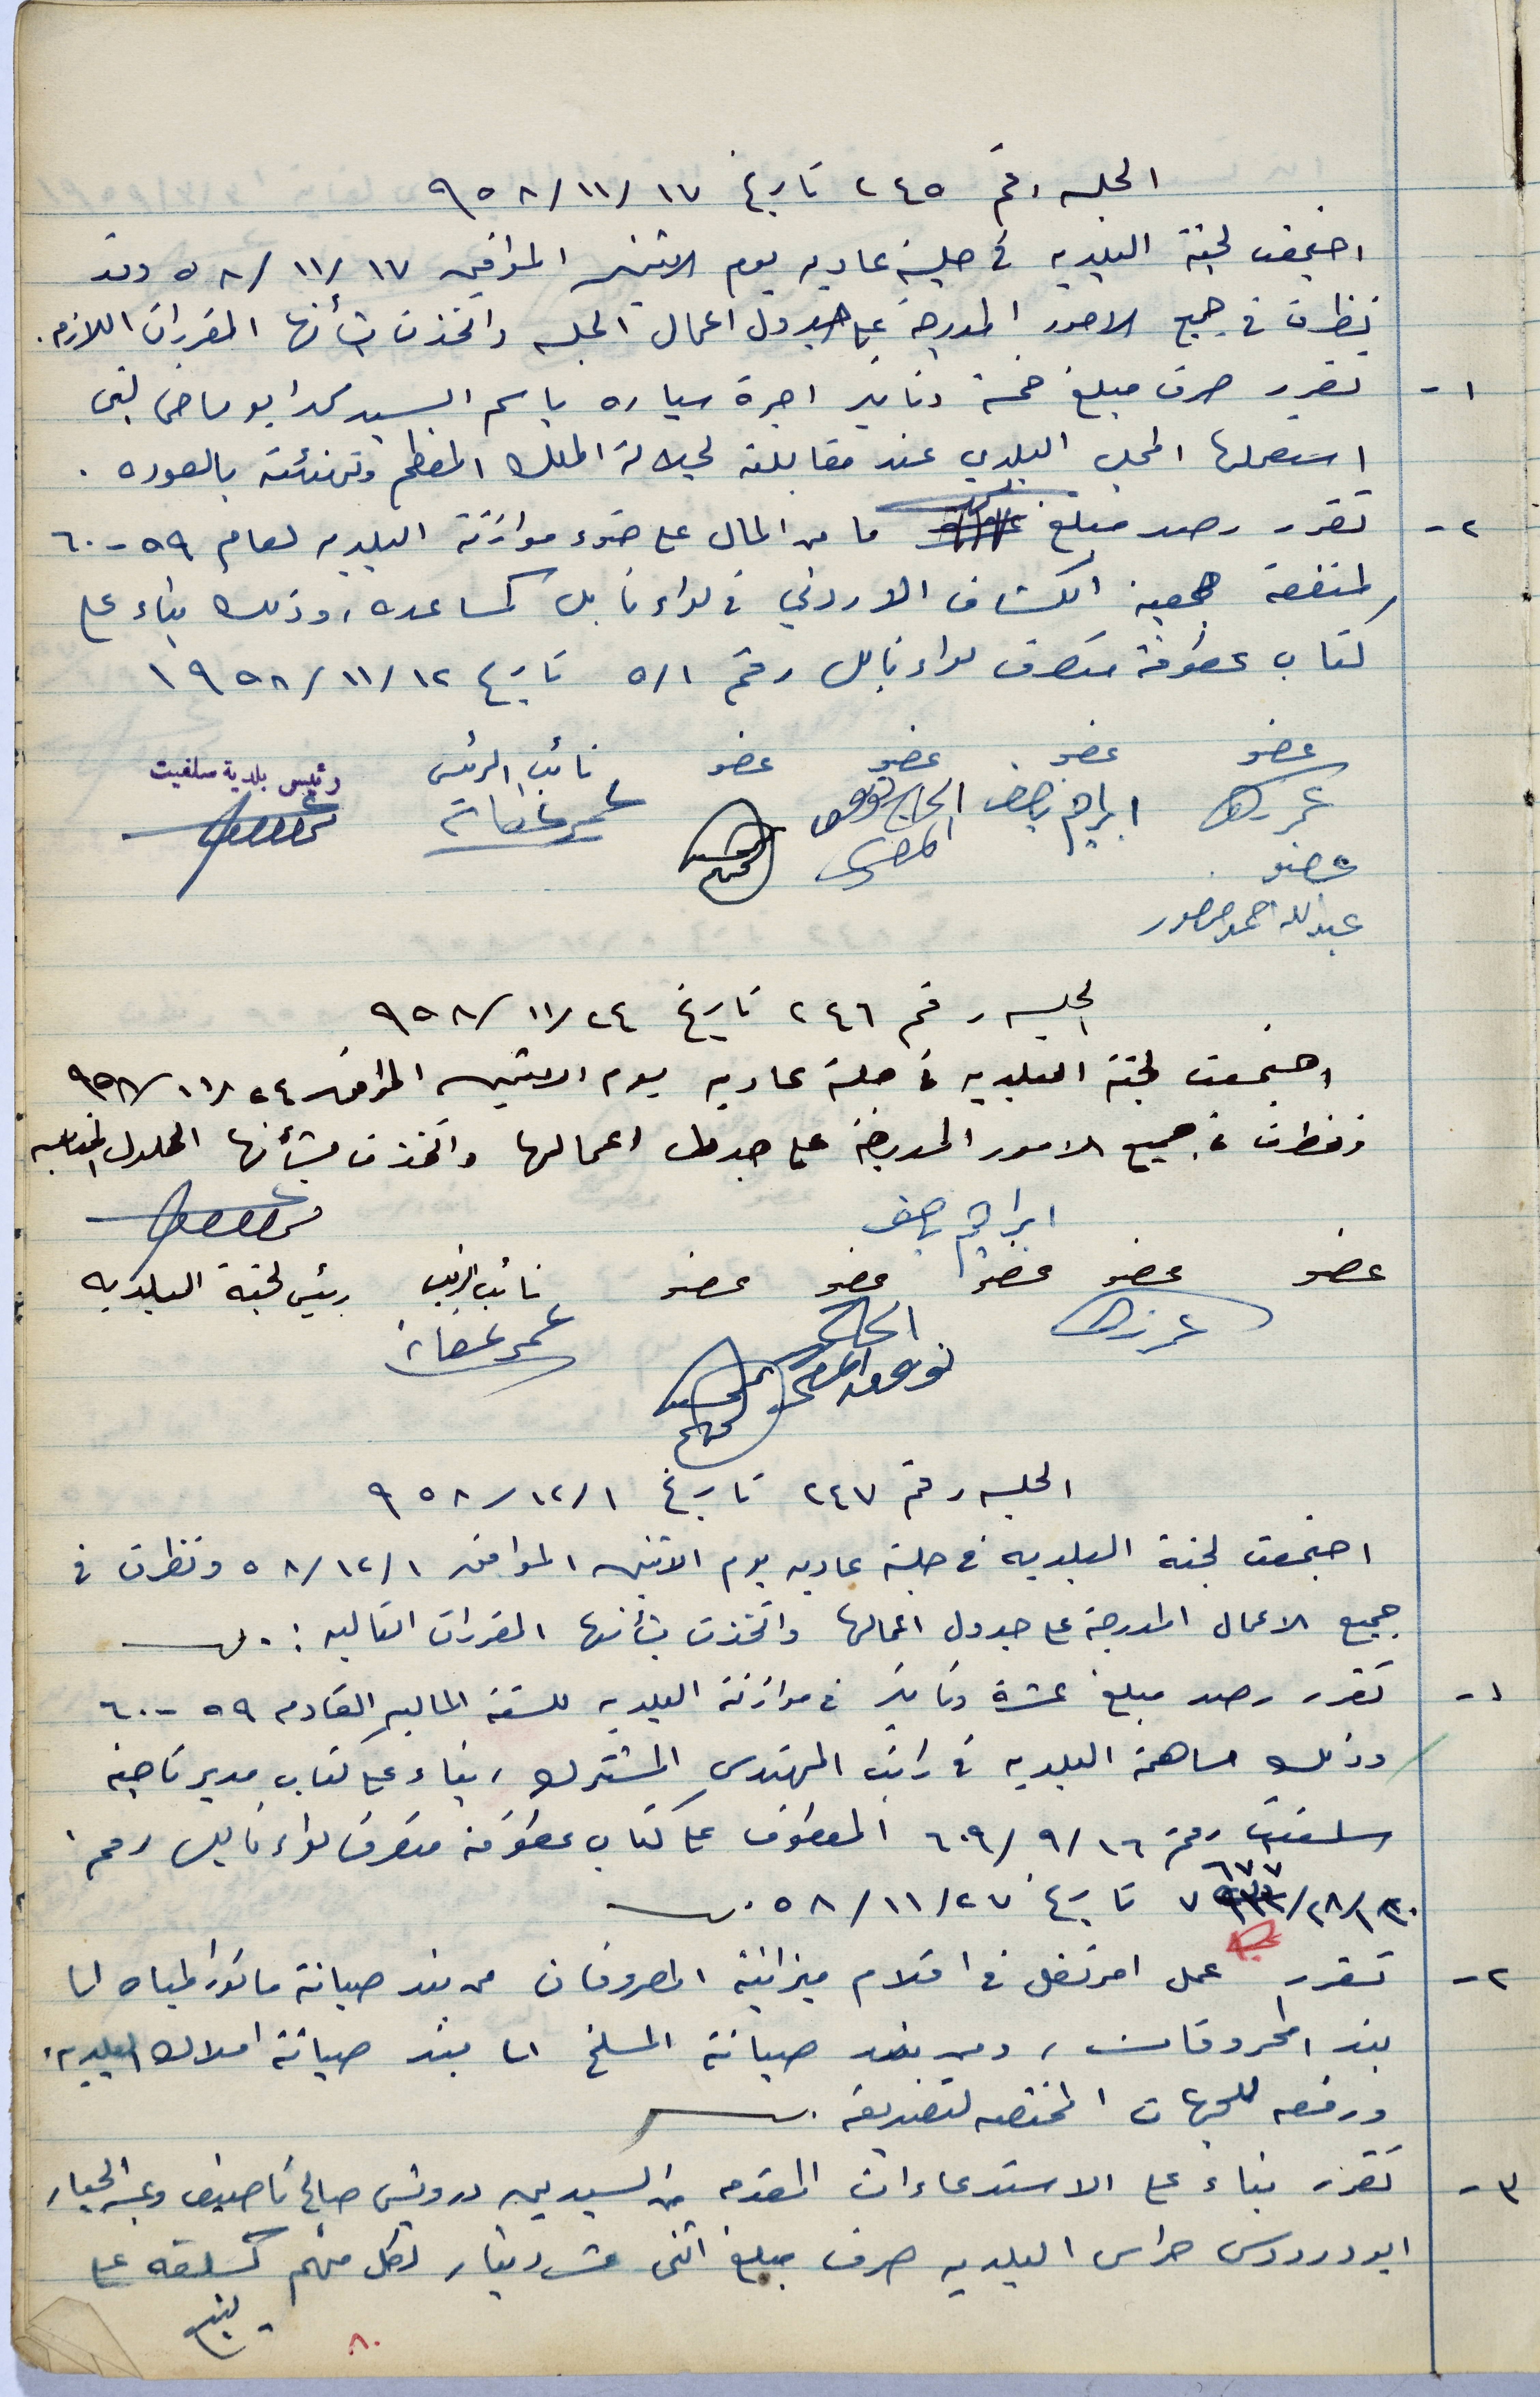 الجلسه رقم ٢٤٥ تاريخ ١٧/١١/٩٥٨
اجتمعت لجنة البلديه في جلسة عاديه يوم الاثنين الموافق ١٧/١١/٥٨ وقد
نظرت في جميع الامور المدرجة على جدول اعمال الجلسه واتخذت بشأنها المقررات اللازمه.
١- تقرر صرف مبلغ خمسة دنانير اجرة سياره باسم السيد محمد ابو ماضي التي
استعملها المجلس البلدي عند مقابلته لجلالة الملك المعظم وتهنئته بالعوده.
٢- تقرر رصد مبلغ ما من المال على ضوء موازنة البلديه لعام ٥٩-٦٠
لمنفعة جمعية الكشاف الاردني في لواء نابلس كمساعده، وذلك بناء على
كتاب عطوفة متصرف لواء نابلس رقم ٥/١ تاريخ ١٢/١١/١٩٥٨
عضو عضو عضو عضو نائب الرئيس رئيس بلدية سلفيت
ابراهيم الحاج توفيق
عضو
عبدالله احمد منصور
الجلسه رقم ٢٤٦ تاريخ ٢٤/١١/٩٥٨
اجتمعت لجنة البلديه في جلسة عاديه يوم الاثنين الموافق ٢٤/١١/٩٥٨
ونظرت في جميع الامور المدرجة على جدول اعمالها واتخذت بشأنها الحلول المناسبه
ابراهيم
عضو عضو عضو عضو عضو نائب الرئيس رئيس لجنة البلديه
الحاج
توفيق
الجلسه رقم ٢٤٧ تاريخ ١/١٢/٩٥٨
اجتمعت لجنة البلديه في جلسة عاديه يوم الاثنين الموافق ١/١٢/٥٨ ونظرت في
جميع الاعمال المدرجة على جدول اعمالها واتخذت بشأنها المقررات التاليه :.
١- تقرر رصد مبلغ عشرة دنانير في موازنة البلديه للسنة الماليه القادمه ٥٩-٦٠
وذلك مساهمة البلديه في راتب المهندس المشترك، بناء على كتاب مدير ناحية
سلفيت رقم ١٦/٩/٦٠٩ المعطوف على كتاب عطوفة متصرف لواء نابلس رقم
٦٧٧
تاريخ ٢٧/١١/٥٨.
٢- تقرر عمل امر نقل في اقلام ميزانية المصروفات من بند صيانة ماتور المياه الى
بند المحروقات، ومن بند صيانة المسلخ الى بند صيانة املاك البلديه،
ورفعه للجهات المختصه لتصديقه.
٣- تقرر بناء على الاستدعاءات المقدمه من السيدين درويش صالح وعبد الجبار
ابو دردوس حراس البلديه صرف مبلغ اثنى عشر دينار لكل منهم كسلفه على
يتبع
٨٠